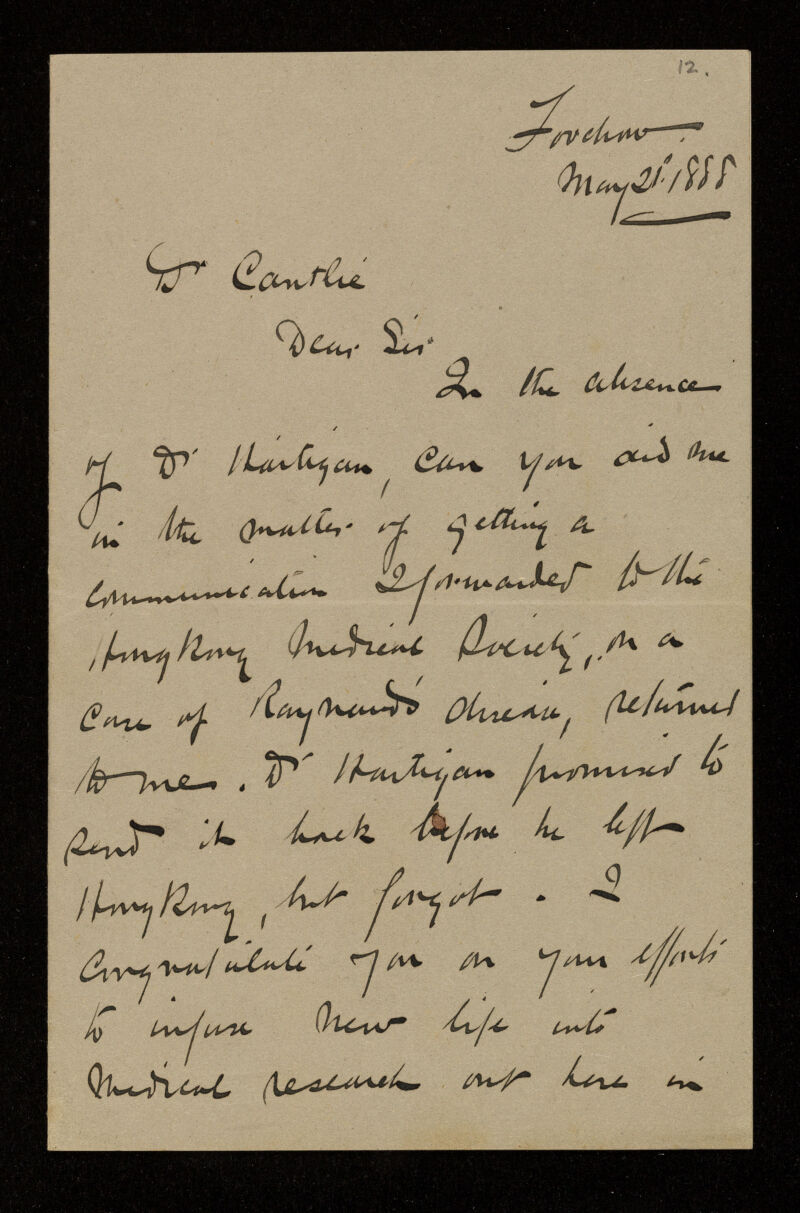 12.
Foochow.
May 21st 1888
Dr Cantlie
Dear Sir
In the absence
of Dr Hartigan, can you aid me
in the matter of getting a
communication I forwarded to the
HongKong Medical Society, on a
case of Raynaud's disease, returned
to me. Dr Hartigan promised to
send it back before he left
HongKong, but forgot. I
congratulate you on your efforts
to infuse new life into
Medical research out here in